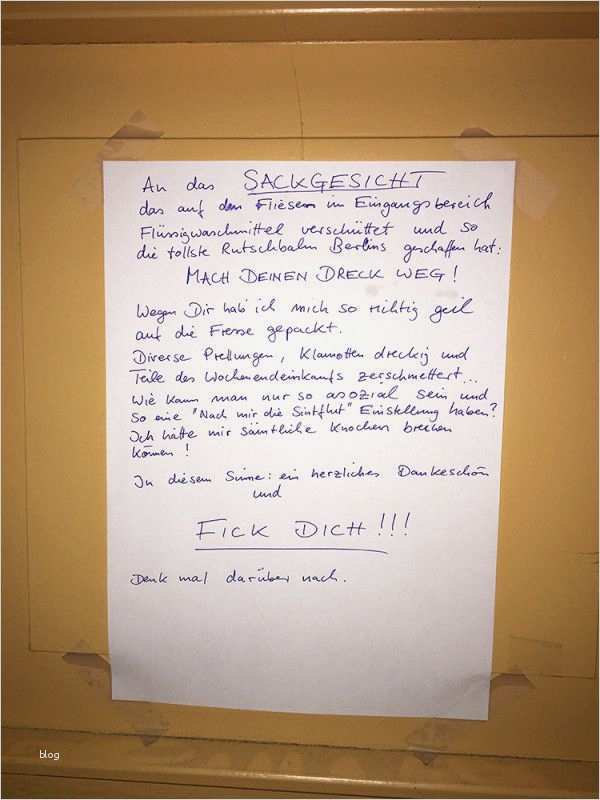 An das SACKGESICHT
das auf den Fliesen im Eingangsbereich
Flüssigwaschmittel verschüttet und so
die tollste Rutschbahn Berlins geschaffen hat:
MACH DEINEN DRECK WEG!
Wegen Dir hab' ich mich so richtig geil
auf die Fresse gepackt.
Diverse Prellungen, Klamotten dreckig und
Teile des Wochenendeinkaufs zerschmettert...
Wie kann man nur so asozial sein und
so eine "Nach mir die Sintflut" Einstellung haben?
Ich hätte mir sämtliche Knochen brechen
können!
In diesem Sinne: ein herzliches Dankeschön
und
FICK DICH!!!
Denk mal darüber nach.
blog